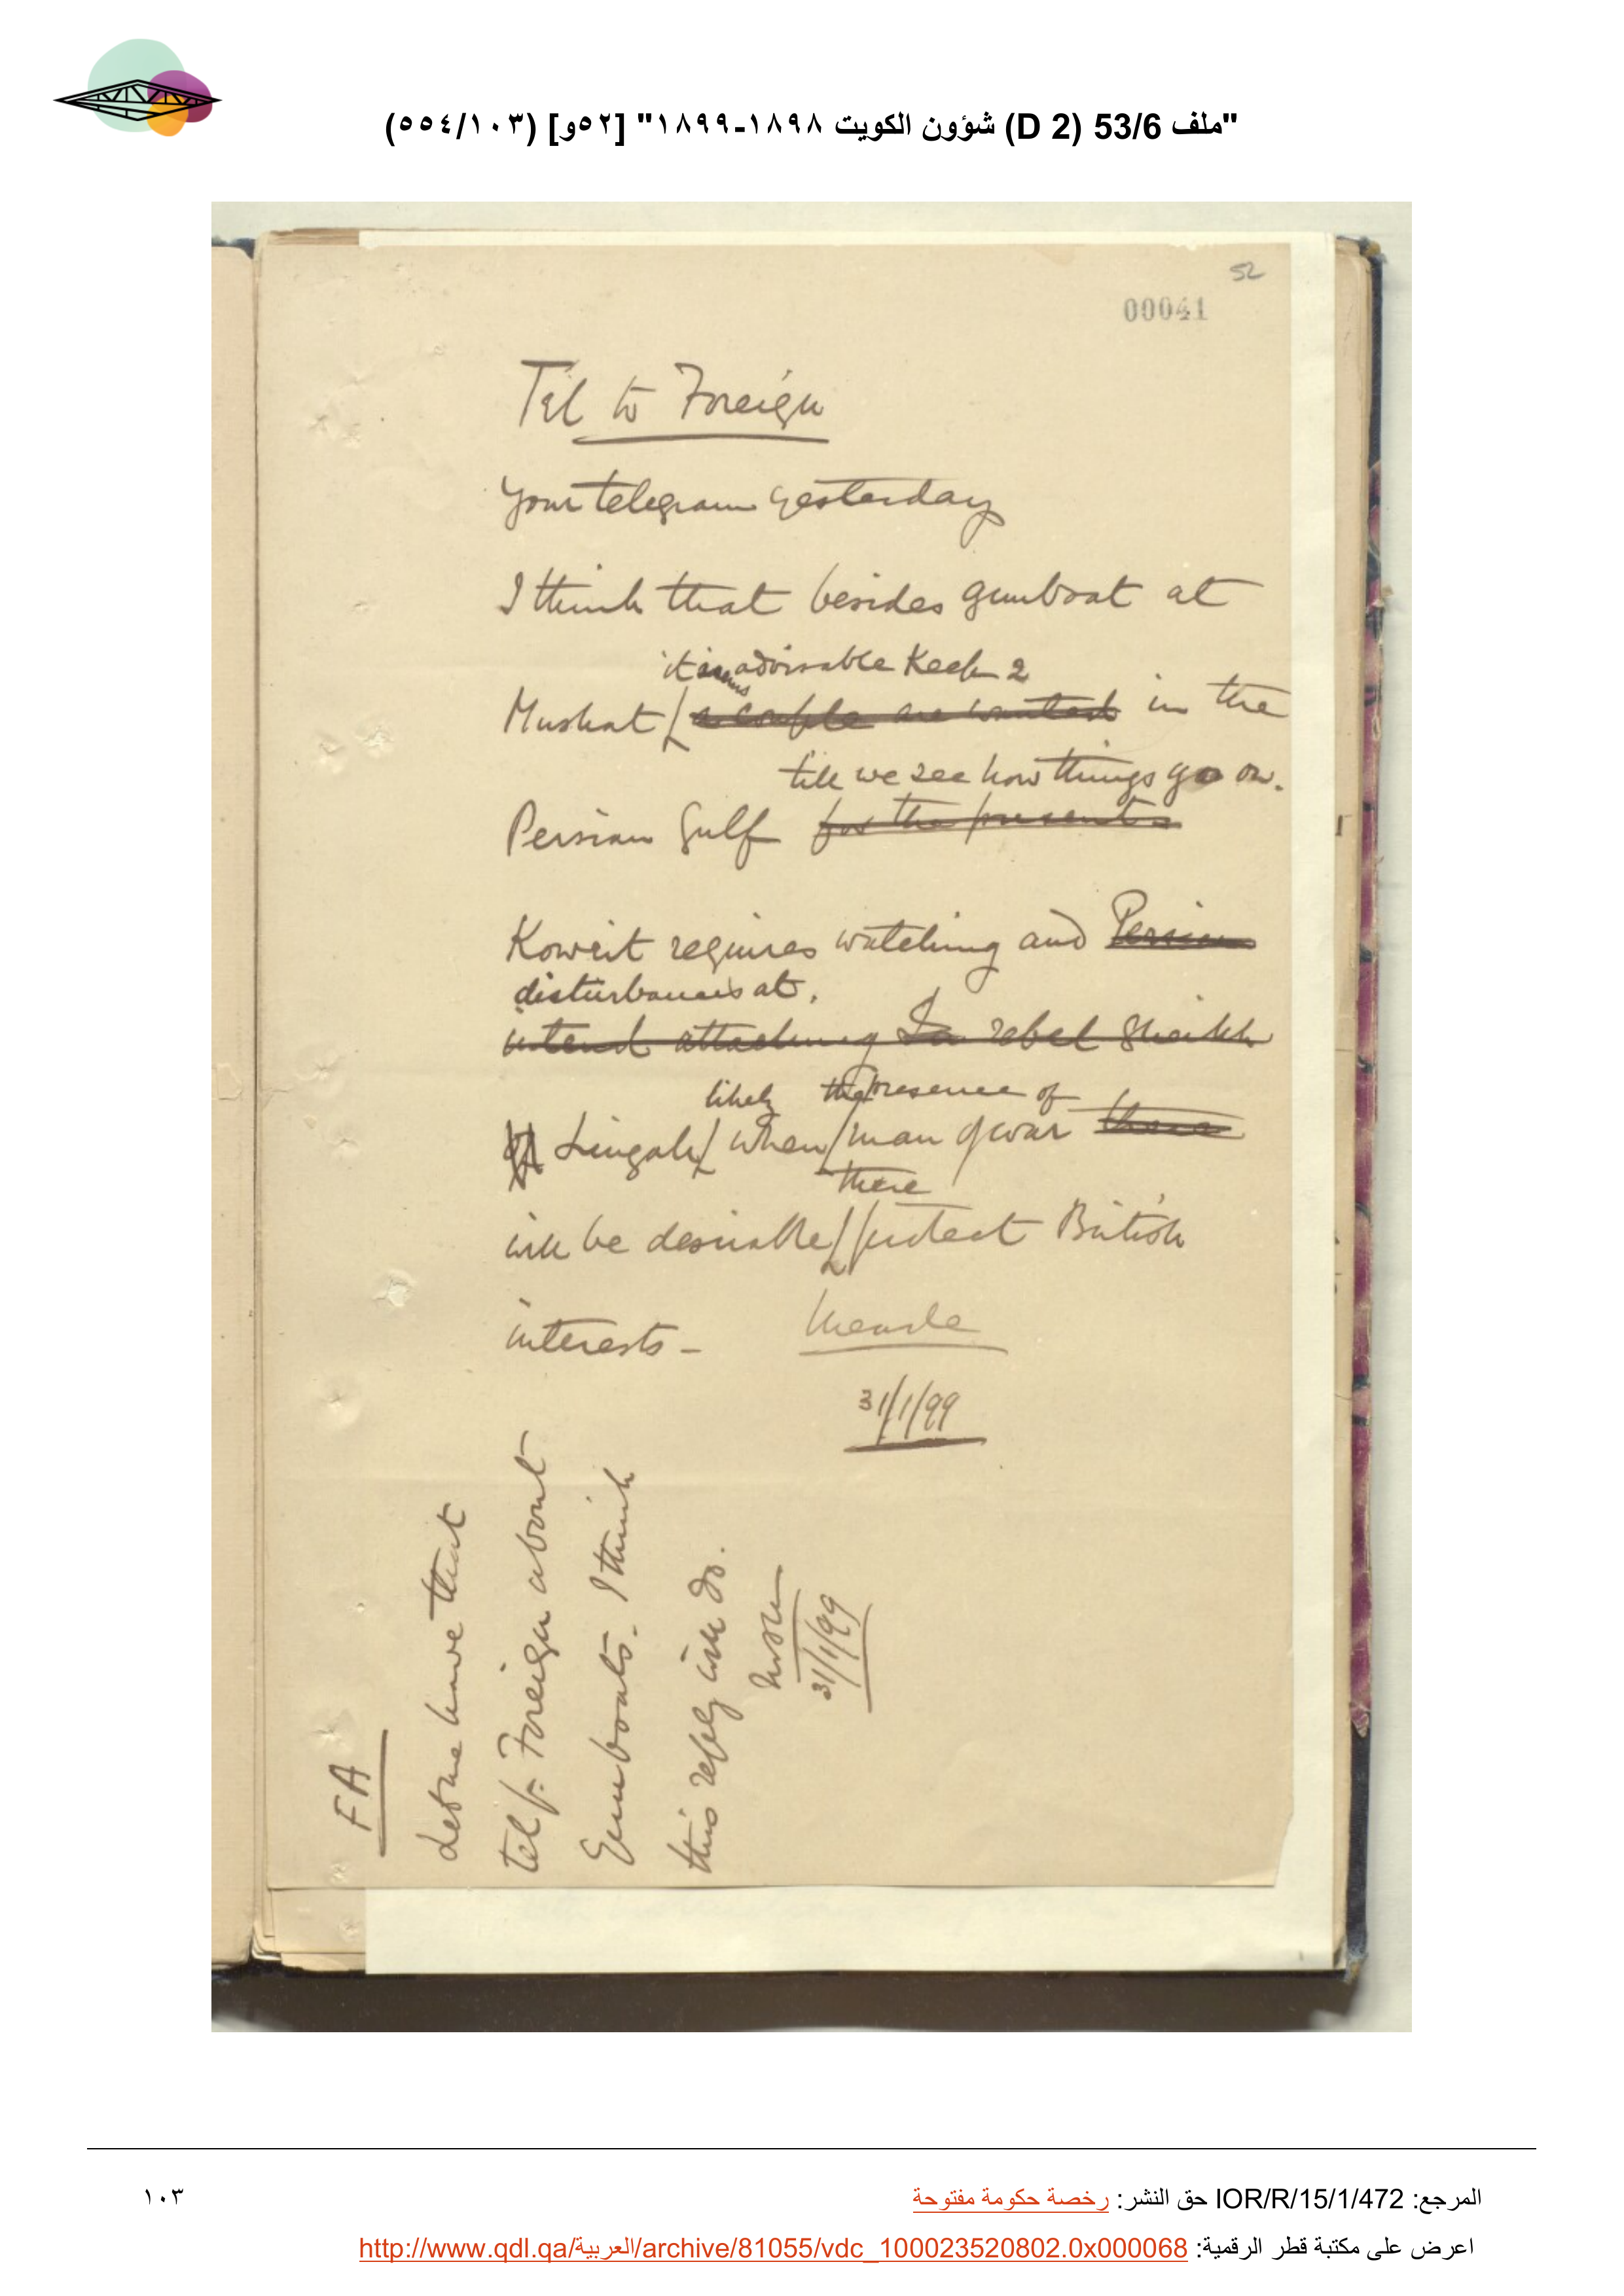 "ملف 53/6 (D 2) شؤون الكويت ١٨٩٨-١٨٩٩" [٥٢و] (٥٥٤/١٠٣)
52
00041
Tel to Foreign
Your telegram yesterday
I think that besides gunboat at
it seems advisable Keep 2
Muskat a couple are wanted in the
till we see how things go on.
Persian Gulf for the present
Koweit requires watching and Persians
disturbances at
intend attacking rebel Sheikh
likely the presence of
of Lingah when man of war there
there
will be desirable protect British
interests -
Meade
31/1/99
FA
Let me have that
tel f. Foreign about
Gunboats. I think
this reply will do.
31/1/99
المرجع: IOR/R/15/1/472 حق النشر: رخصة حكومة مفتوحة
١٠٣
اعرض على مكتبة قطر الرقمية: http://www.qdl.qa/العربية/archive/81055/vdc_100023520802.0x000068